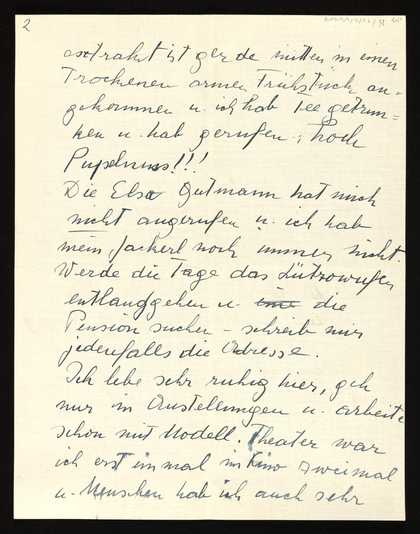 2
extrakt ist gerde mitten in einen
Trockenen armen Frühstück an-
gekommen u. ich hab Tee getrun-
ken u. hab gerufen: hoch
!!!
Die Elsa Gutmann hat mich
nicht angerufen u. ich hab
mein Jackerl noch immer nicht.
Werde die Tage das Lützowufer
entlanggehen u. die
Pension suchen – schreib mir
jedenfalls die Adresse.
Ich lebe sehr ruhig hier, geh
nur in Austellungen u. arbeite
schon mit Modell. Theater war
ich erst einmal im Kino zweimal
u. Menschen hab ich auch sehr